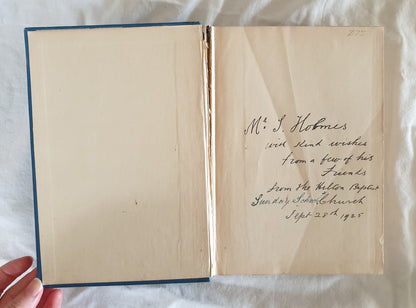 Mr S. Holmes
wid kind wishes
from a few of his
Friends
from the Hilton Baptist
Sunday School Church
Sept 28th 1925